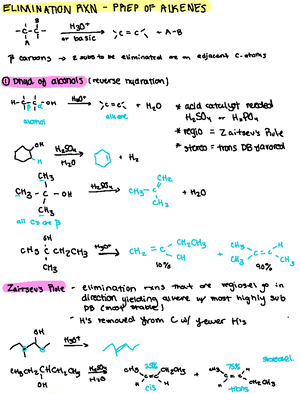 ELIMINATION RXN - PREP OF ALKENES
A B
-C-C- H3O+ or basic → C=C + A-B
β carbons → 2 subs to be eliminated are on adjacent C-atoms
① Dhyd of alcohols (reverse hydration)
H-C-C-OH H3O+ → C=C + H2O
alcohol alkene
* acid catalyst needed
H2SO4 or H3PO4
* regio = Zaitsev's Rule
* stereo = trans DB favored
OH
H
H2SO4
H2O
+ H2
CH3
CH3-C-OH H2SO4 → CH3-C
CH2
CH3
+ H2O
CH3
all C's are β
OH
CH3CCH2CH3 H3O+ → CH2=C
CH2CH3
CH3
+
CH3
CH3
C=C
H
CH3
CH3
10% 90%
Zaitsev's Rule - elimination rxns that are regiosel go in
direction yielding alkene w/ most highly sub
DB (most stable)
- H's removed from C w/ fewer H's
OH
H3O+
CH3CH2CHCH2CH3 H2SO4
H2O
OH
25%
CH3 CH2CH3
C=C
H H
cis
+
75%
CH3 H
C=C
H CH2CH3
trans
stereosel.